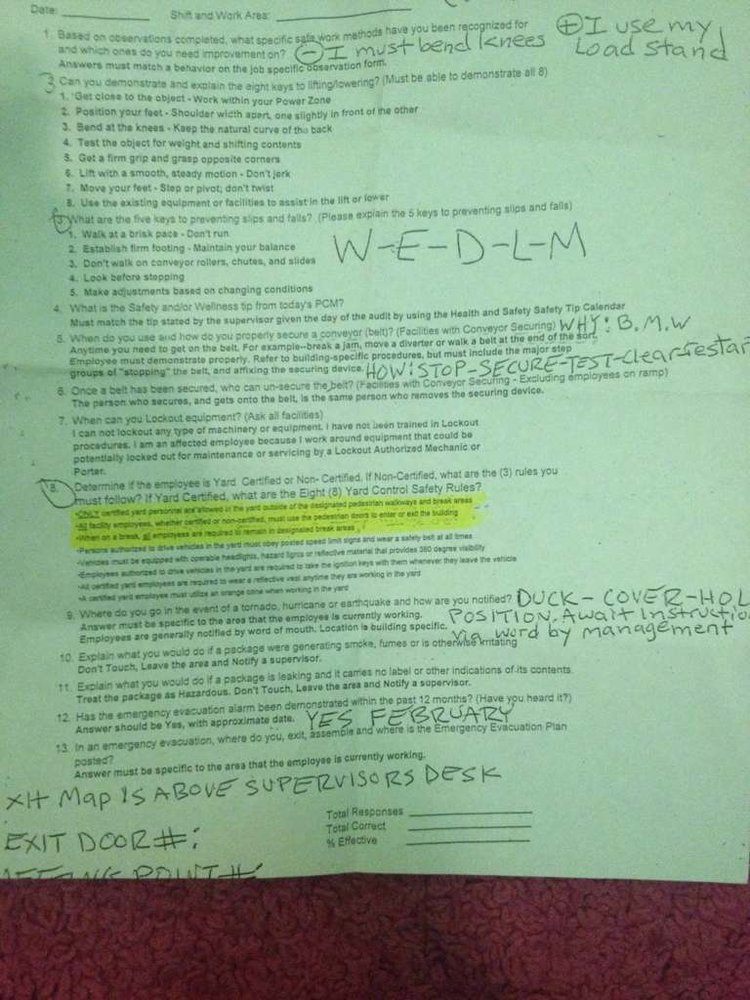 Date: Shift and Work Area:
1. Based on observations completed, what specific safe work methods have you been recognized for
and which ones do you need improvement on? ⊖ I must bend knees
⊕ I use my
Load stand
Answers must match a behavior on the job specific observation form.
Can you demonstrate and explain the eight keys to lifting/lowering? (Must be able to demonstrate all 8)
1. Get close to the object - Work within your Power Zone
2. Position your feet - Shoulder width apart, one slightly in front of the other
3. Bend at the knees - Keep the natural curve of the back
4. Test the object for weight and shifting contents
5. Get a firm grip and grasp opposite corners
6. Lift with a smooth, steady motion - Don't jerk
7. Move your feet - Step or pivot; don't twist
8. Use the existing equipment or facilities to assist in the lift or lower
3. What are the five keys to preventing slips and falls? (Please explain the 5 keys to preventing slips and falls)
1. Walk at a brisk pace - Don't run
2. Establish firm footing - Maintain your balance
3. Don't walk on conveyor rollers, chutes, and slides
4. Look before stepping
5. Make adjustments based on changing conditions
W-E-D-L-M
4. What is the Safety and/or Wellness tip from today's PCM?
Must match the tip stated by the supervisor given the day of the audit by using the Health and Safety Safety Tip Calendar
5. When do you use and how do you properly secure a conveyor (belt)? (Facilities with Conveyor Securing) WHY: B.M.W
Anytime you need to get on the belt. For example--break a jam, move a diverter or walk a belt at the end of the sort.
Employee must demonstrate properly. Refer to building-specific procedures, but must include the major step
groups of "stopping" the belt, and affixing the securing device. HOW: STOP-SECURE-TEST-Clear-restar
6. Once a belt has been secured, who can un-secure the belt? (Facilities with Conveyor Securing - Excluding employees on ramp)
The person who secures, and gets onto the belt, is the same person who removes the securing device.
7. When can you Lockout equipment? (Ask all facilities)
I can not lockout any type of machinery or equipment. I have not been trained in Lockout
procedures. I am an affected employee because I work around equipment that could be
potentially locked out for maintenance or servicing by a Lockout Authorized Mechanic or
Porter.
8. Determine if the employee is Yard Certified or Non- Certified. If Non-Certified, what are the (3) rules you
must follow? If Yard Certified, what are the Eight (8) Yard Control Safety Rules?
•ONLY certified yard personnel are allowed in the yard outside of the designated pedestrian walkways and break areas
•All facility employees, whether certified or non-certified, must use the pedestrian doors to enter or exit the building
•When on a break, all employees are required to remain in designated break areas
•Persons authorized to drive vehicles in the yard must obey posted speed limit signs and wear a safety belt at all times
•Vehicles must be equipped with operable headlights, hazard lights or reflective material that provides 360 degree visibility
•Employees authorized to drive vehicles in the yard are required to take the ignition keys with them whenever they leave the vehicle
•All certified yard employees are required to wear a reflective vest anytime they are working in the yard
•A certified yard employee must utilize an orange cone when working in the yard
9. Where do you go in the event of a tornado, hurricane or earthquake and how are you notified? DUCK-COVER-HOL
Answer must be specific to the area that the employee is currently working. POSITION. Await Instructio
Employees are generally notified by word of mouth. Location is building specific. Via word by management
10. Explain what you would do if a package were generating smoke, fumes or is otherwise irritating
Don't Touch, Leave the area and Notify a supervisor.
11. Explain what you would do if a package is leaking and it carries no label or other indications of its contents
Treat the package as Hazardous. Don't Touch, Leave the area and Notify a supervisor.
12. Has the emergency evacuation alarm been demonstrated within the past 12 months? (Have you heard it?)
Answer should be Yes, with approximate date. YES FEBRUARY
13. In an emergency evacuation, where do you, exit, assemble and where is the Emergency Evacuation Plan
posted?
Answer must be specific to the area that the employee is currently working.
xit Map IS ABOVE SUPERVISORS DESK
EXIT DOOR#:
Total Responses
Total Correct
% Effective
POINT#: